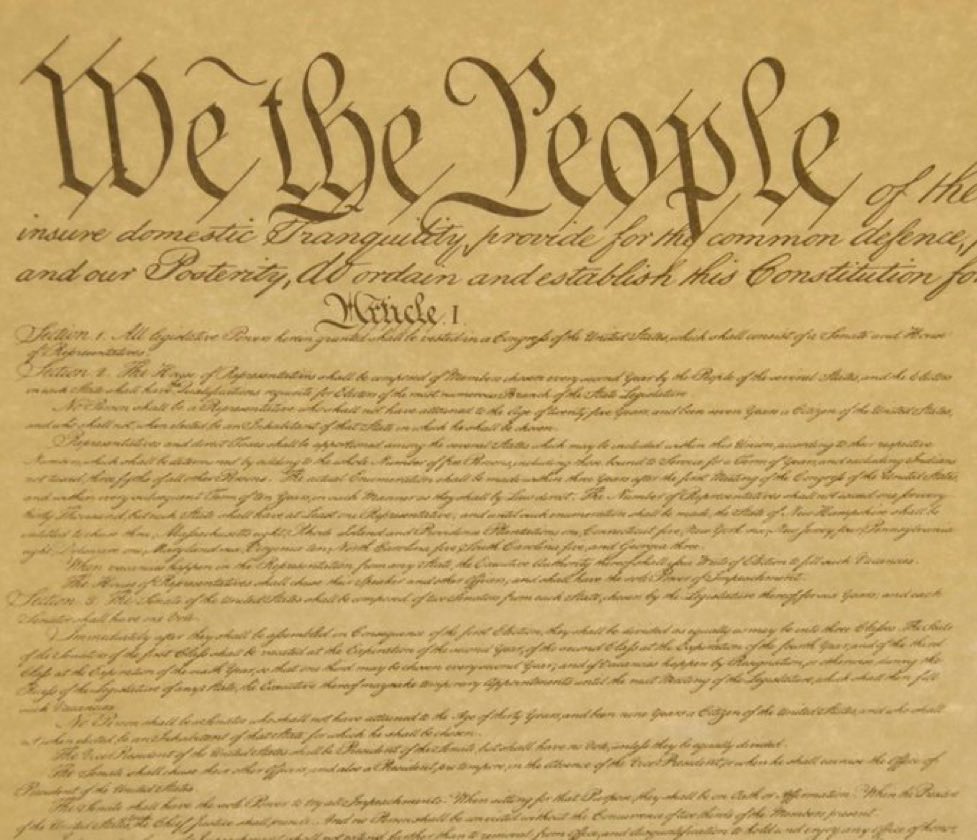 We the People of the
insure domestic Tranquility, provide for the common defence,
and our Posterity, do ordain and establish this Constitution for
Article. I.
Section. 1. All legislative Powers herein granted shall be vested in a Congress of the United States, which shall consist of a Senate and House
of Representatives.
Section. 2. The House of Representatives shall be composed of Members chosen every second Year by the People of the several States, and the Electors
in each State shall have the Qualifications requisite for Electors of the most numerous Branch of the State Legislature.
No Person shall be a Representative who shall not have attained to the Age of twenty five Years, and been seven Years a Citizen of the United States,
and who shall not, when elected, be an Inhabitant of that State in which he shall be chosen.
Representatives and direct Taxes shall be apportioned among the several States which may be included within this Union, according to their respective
Numbers, which shall be determined by adding to the whole Number of free Persons, including those bound to Service for a Term of Years, and excluding Indians
not taxed, three fifths of all other Persons. The actual Enumeration shall be made within three Years after the first Meeting of the Congress of the United States,
and within every subsequent Term of ten Years, in such Manner as they shall by Law direct. The Number of Representatives shall not exceed one for every
thirty Thousand, but each State shall have at Least one Representative; and until such enumeration shall be made, the State of New Hampshire shall be
entitled to chuse three, Massachusetts eight, Rhode Island and Providence Plantations one, Connecticut five, New York six, New Jersey four, Pennsylvania
eight, Delaware one, Maryland six, Virginia ten, North Carolina five, South Carolina five, and Georgia three.
When vacancies happen in the Representation from any State, the Executive Authority thereof shall issue Writs of Election to fill such Vacancies.
The House of Representatives shall chuse their Speaker and other Officers; and shall have the sole Power of Impeachment.
Section. 3. The Senate of the United States shall be composed of two Senators from each State, chosen by the Legislature thereof, for six Years; and each
Senator shall have one Vote.
Immediately after they shall be assembled in Consequence of the first Election, they shall be divided as equally as may be into three Classes. The Seats
of the Senators of the first Class shall be vacated at the Expiration of the second Year, of the second Class at the Expiration of the fourth Year, and of the third
Class at the Expiration of the sixth Year, so that one third may be chosen every second Year; and if Vacancies happen by Resignation, or otherwise, during the
Recess of the Legislature of any State, the Executive thereof may make temporary Appointments until the next Meeting of the Legislature, which shall then fill
such Vacancies.
No Person shall be a Senator who shall not have attained to the Age of thirty Years, and been nine Years a Citizen of the United States, and who shall
not, when elected, be an Inhabitant of that State for which he shall be chosen.
The Vice President of the United States shall be President of the Senate, but shall have no Vote, unless they be equally divided.
The Senate shall chuse their other Officers, and also a President pro tempore, in the Absence of the Vice President, or when he shall exercise the Office of
President of the United States.
The Senate shall have the sole Power to try all Impeachments. When sitting for that Purpose, they shall be on Oath or Affirmation. When the President
of the United States is tried, the Chief Justice shall preside: And no Person shall be convicted without the Concurrence of two thirds of the Members present.
shall not extend further than to removal from Office, and disqualification to hold and enjoy any Office of honor,